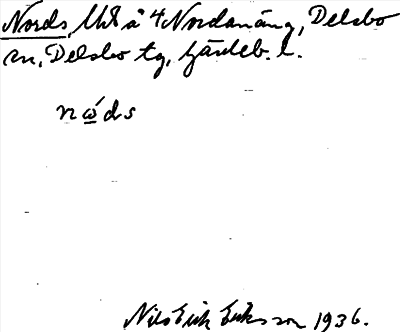 Nords, Utt å 4 Nordanäng, Delsbo
sn, Delsbo tg, Gävleb. l.
nώds
Nils Erik Eriksson 1936.